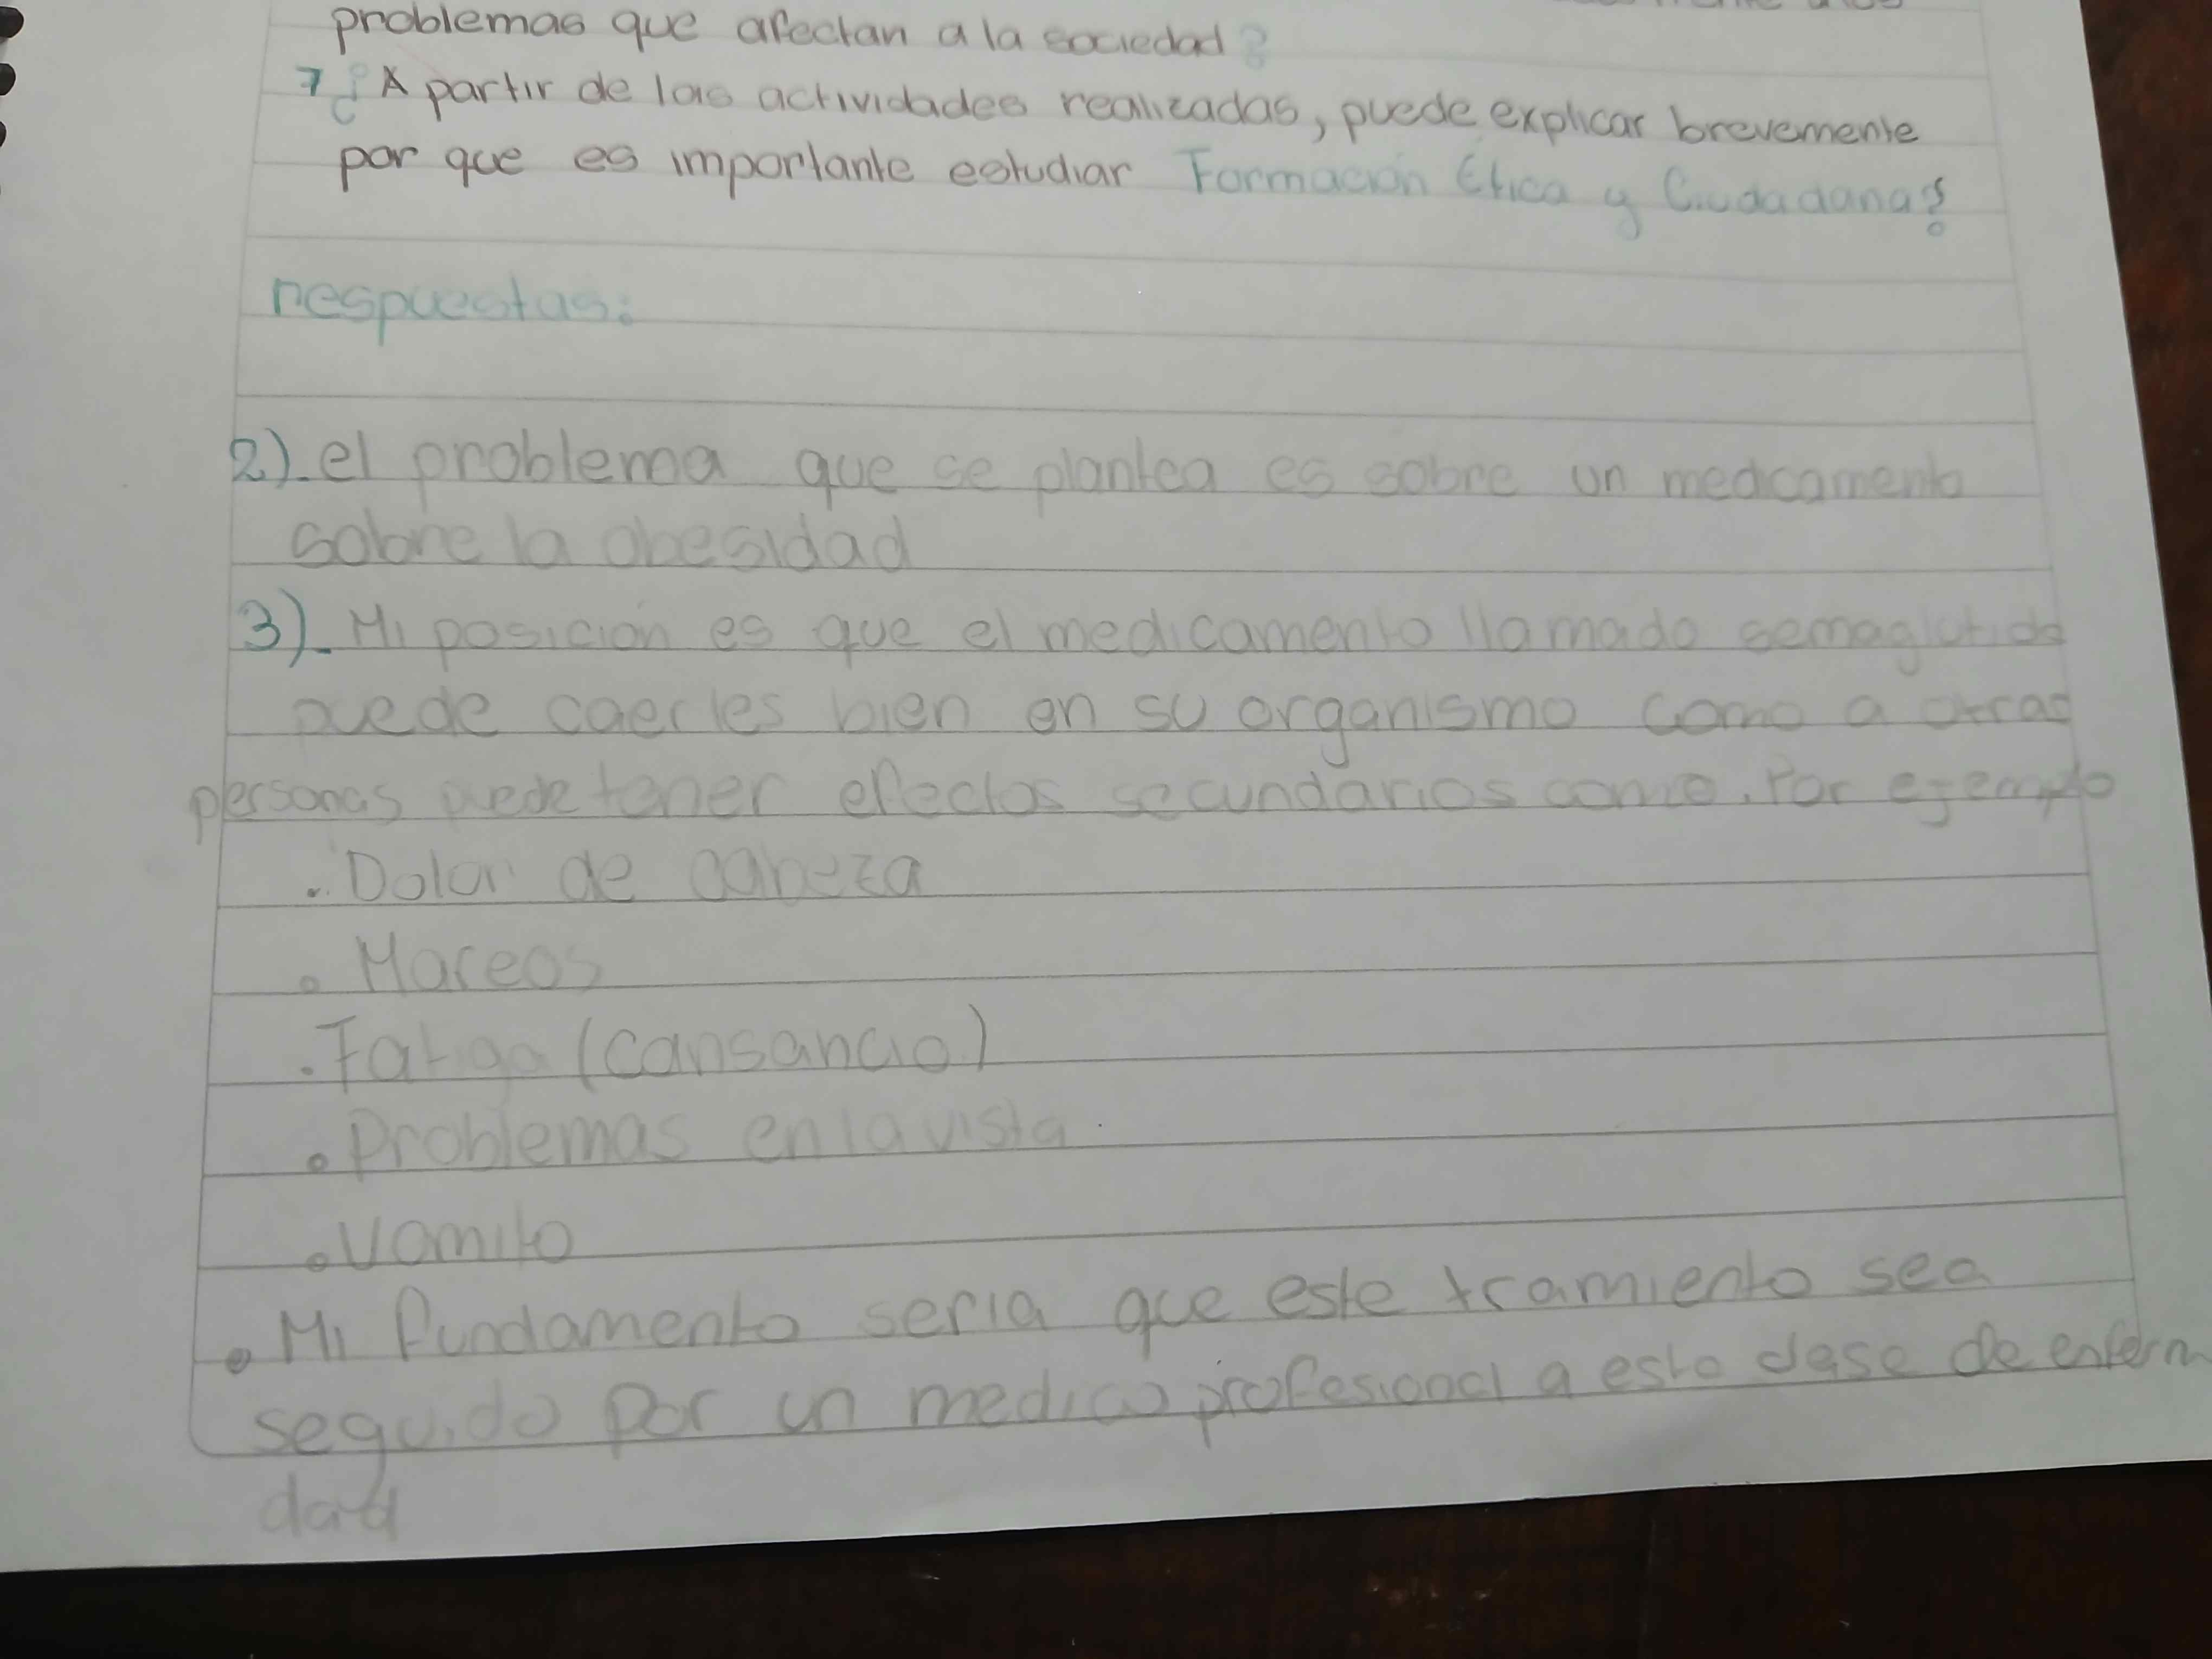 problemas que afectan a la sociedad?
7 ¿A partir de las actividades realizadas, puede explicar brevemente
por que es importante estudiar Formación Ética y Ciudadana?
respuestas:
2)-el problema que se plantea es sobre un medicamento
sobre la obesidad
3)- Mi posición es que el medicamento llamado semaglutida
puede caerles bien en su organismo como a otras
personas puede tener efectos secundarios como. Por ejemplo
. Dolor de cabeza
. Mareos
. Fatiga (cansancio)
. Problemas en la vista
. Vomito
. Mi fundamento seria que este tramiento sea
seguido por un medico profesional a esta clase de enferm
dad